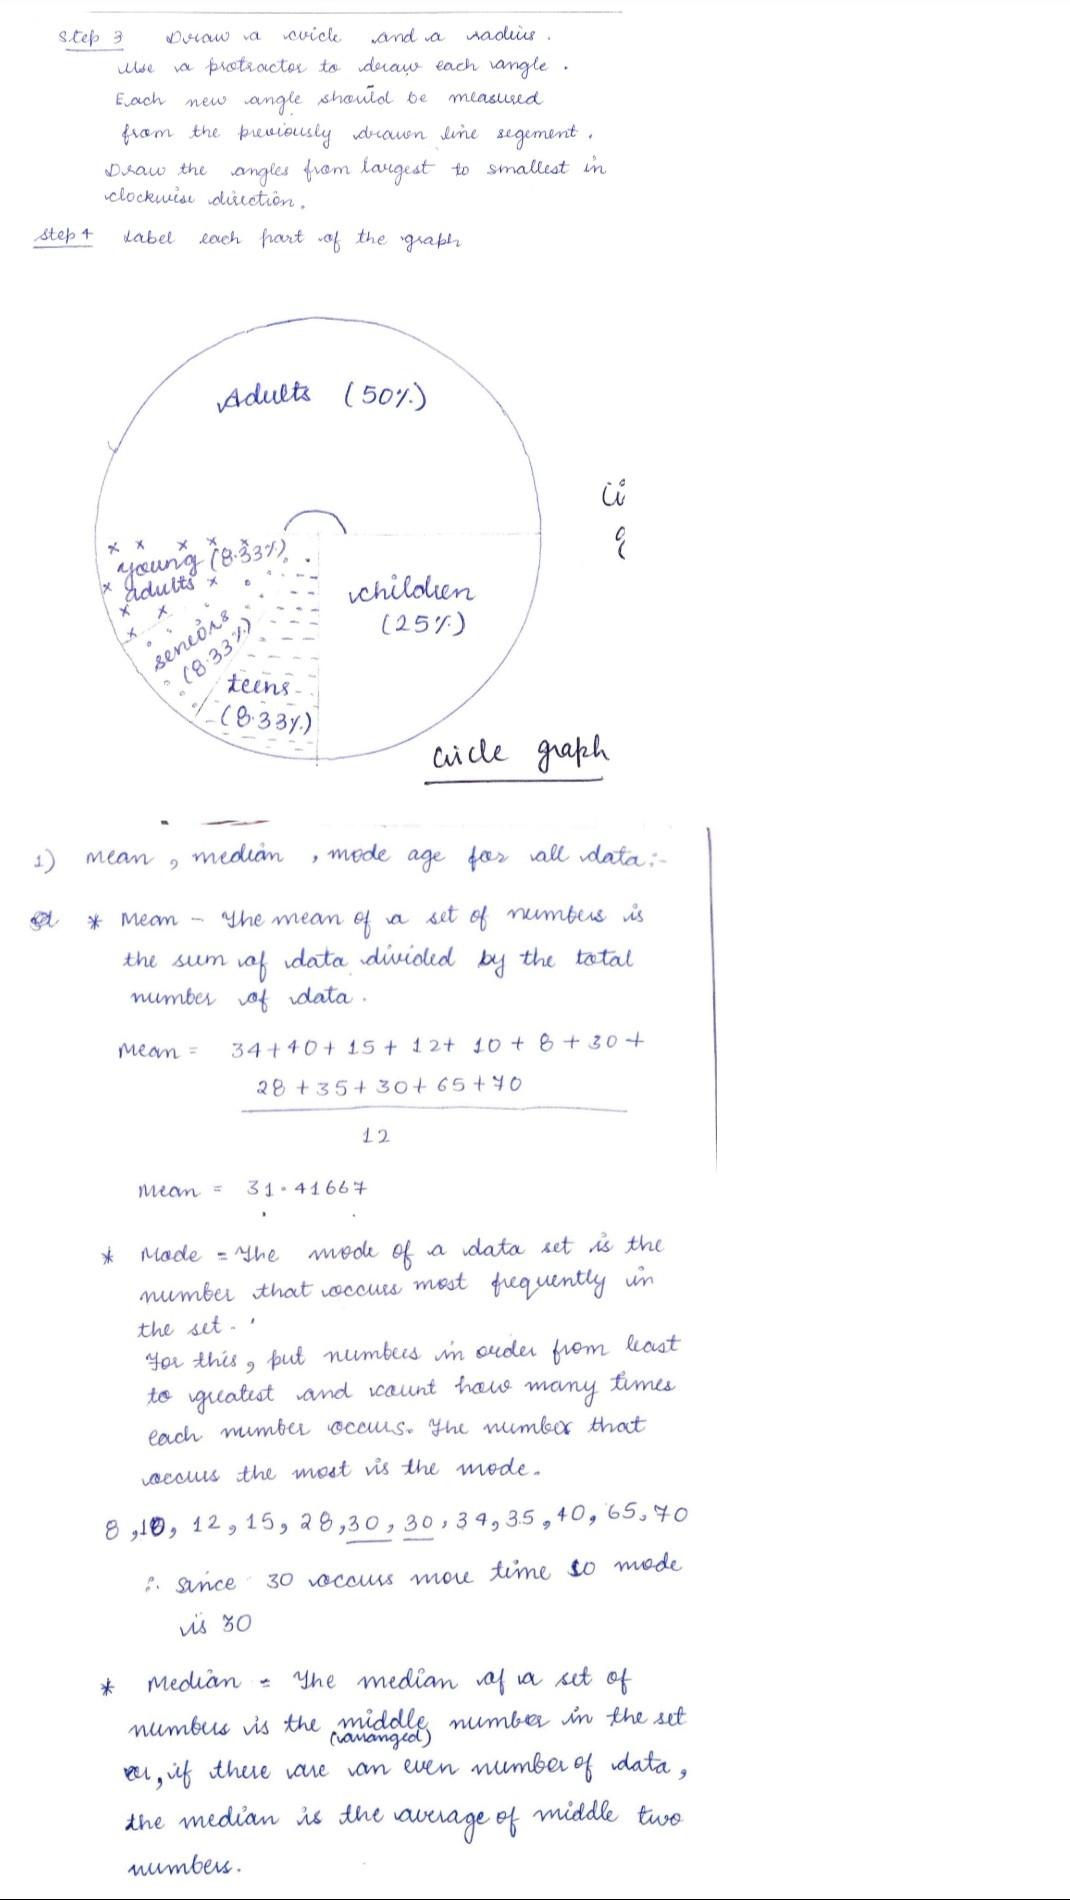 Step 3 Draw a circle and a radius.
Use a protractor to draw each angle.
Each new angle should be measured
from the previously drawn line segement.
Draw the angles from largest to smallest in
clockwise direction.
Step 4 Label each part of the graph
Adults (50%)
young (8.33%)
adults
seneors
(8.33%)
teens
(8.33%)
children
(25%)
Circle graph
1) Mean, median, mode age for all data:-
* Mean - The mean of a set of numbers is
the sum of data divided by the total
number of data.
Mean = 34+40+15+12+10+8+30+
28+35+30+65+70
12
Mean = 31.41667
* Mode = The mode of a data set is the
number that occurs most frequently in
the set.
For this, put numbers in order from least
to greatest and count how many times
each number occurs. The number that
occurs the most is the mode.
8,10,12,15,28,30,30,34,35,40,65,70
∴ Since 30 occurs more time so mode
is 30
* Median = The median of a set of
numbers is the middle number in the set
(arranged)
or, if there are an even number of data,
the median is the average of middle two
numbers.